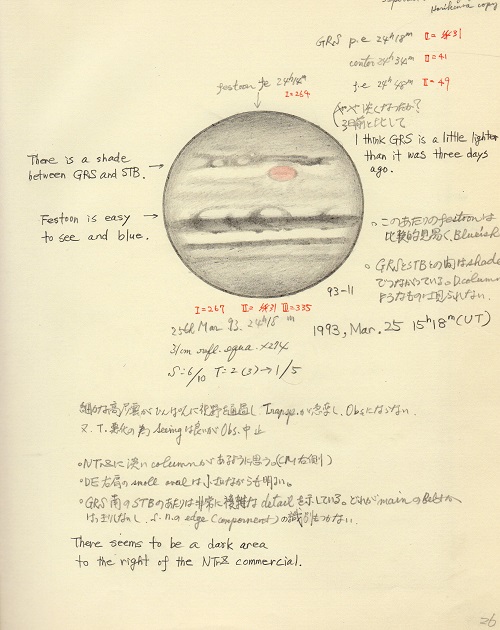 Horikawa copy
GRS p.e 24h18m II=31
center 24h34m II=41
f.e 24h48m II=49
festoon fe 24h14m
I=264
やや淡くなったか?
3日前と比して
I think GRS is a little lighter
than it was three days
ago.
There is a shade
between GRS and STB.
Festoon is easy
to see and blue.
○このあたりのfestoonは
比較的見易く、Blueish
○GRSとSTBとの間はshade
でつながっている。D.column
ようなものは見られない。
93-11
I=267 II=31 III=335
25th Mar 93. 24h18m
1993, Mar. 25 15h18m (UT)
31cm refl. equa. ×274
S=6/10 T=2(3)→1/5
細かな高層雲がひんぱんに視野を通過し、Transp.が悪く、Obsにならない
又、T.悪化の為 Seeingは良いがObs.中止
○NTrZに淡いcolumnがあるように思う。(CM右側)
○DE右肩のsmall ovalは小さいながらも明るい。
○GRS南のSTBのあたりは非常に複雑なdetailを示している。どれがmainのBeltか
はっきりしないし、S. n.a edge Component)の識別もつかない。
There seems to be a dark area
to the right of the NTrZ commercial.
26